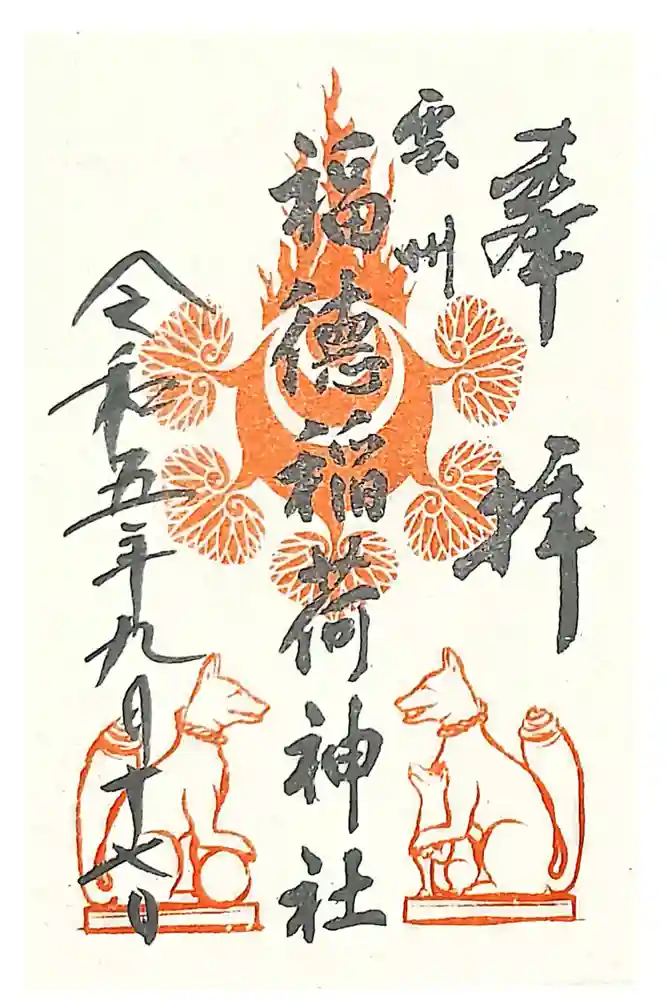 奉拝
雲州
福德稲荷神社
令和五年九月十七日